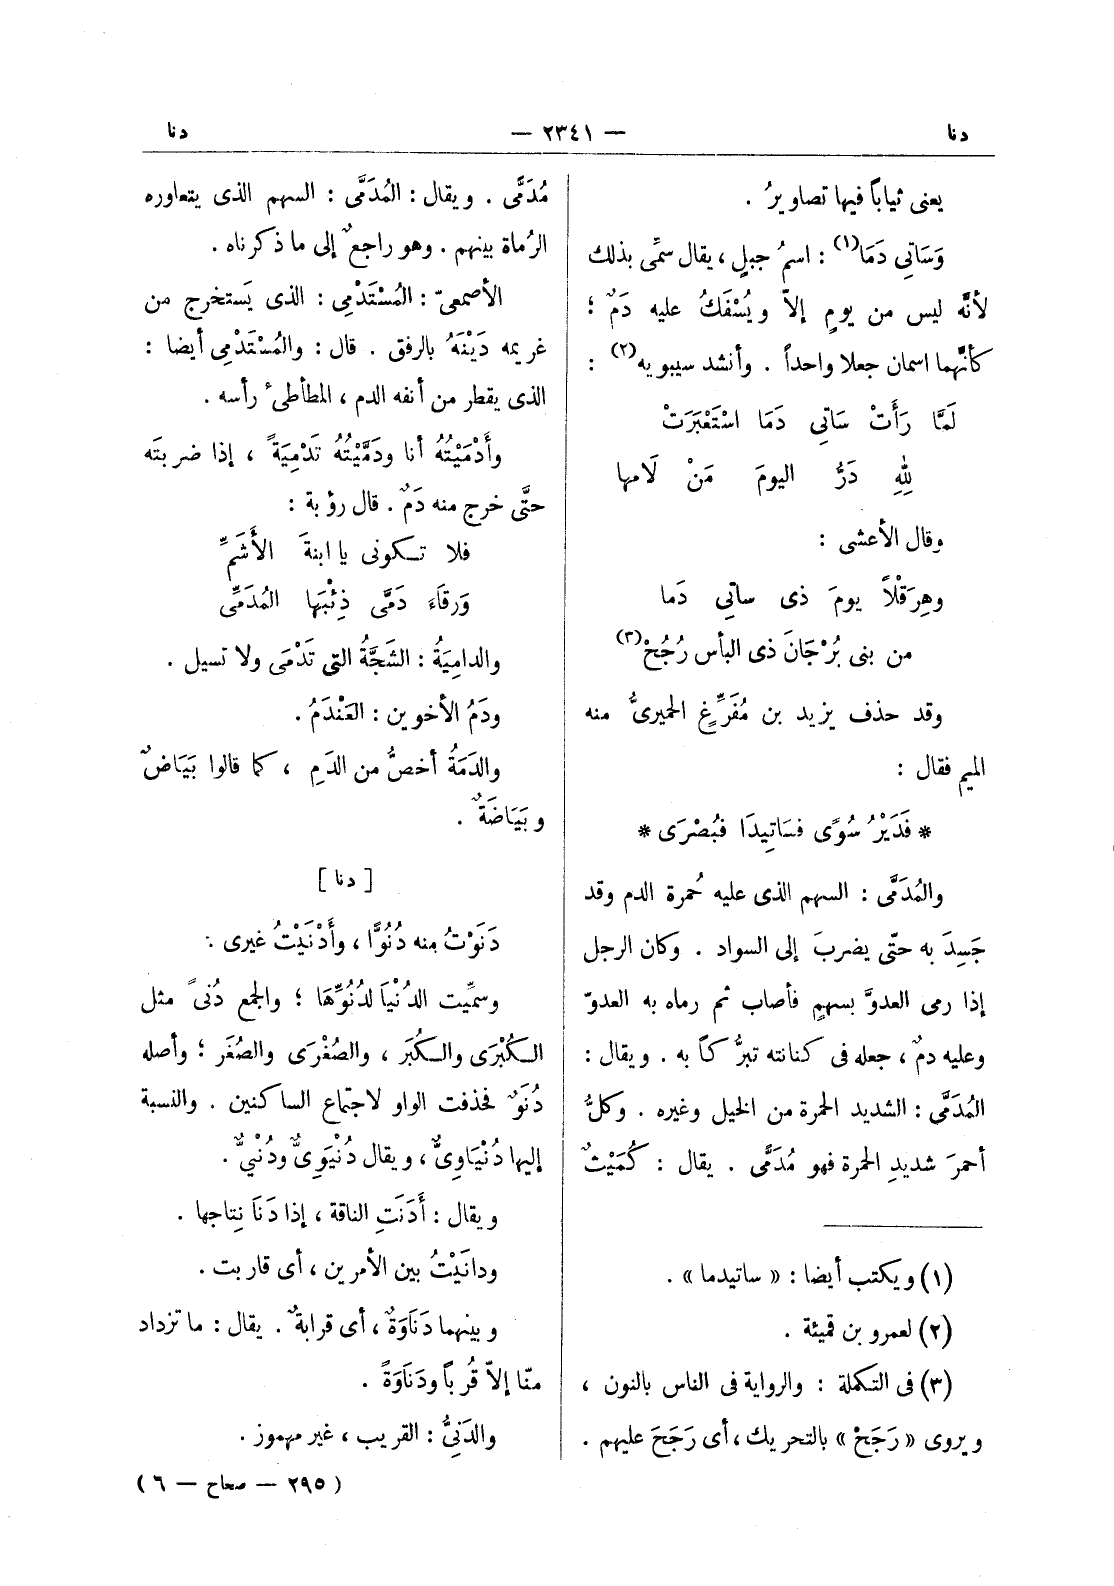 دنا
— ٢٣٤١ —
دنا
يعنى ثياباً فيها تصاويرُ .
وَسَاتِى دَمَا(١) : اسمُ جبلٍ ، يقال سمِّى بذلك
لأنَّه ليس من يومٍ إلاّ ويُسْفَكُ عليه دَمٌ ؛
كأنَّهما اسمان جعلا واحداً . وأنشد سيبويه(٢) :
لَمَّا رَأَتْ سَاتِى دَمَا اسْتَعْبَرَتْ
لِلهِ دَرُّ اليومَ مَنْ لَامها
وقال الأعشى :
وهِرَقْلاً يومَ ذى ساتِى دَما
من بنى بُرْجَانَ ذى البأس رُجُحْ(٣)
وقد حذف يزيد بن مُفَرِّغٍ الحميرىُّ منه
الميم فقال :
* فَدَيْرُ سُوًى فسَاتِيدَا فبُصْرَى *
والمُدَمَّى : السهم الذى عليه حُمرة الدم وقد
جَسِدَ به حتّى يضربَ إلى السواد . وكان الرجل
إذا رمى العدوَّ بسهمٍ فأصاب ثم رماه به العدوّ
وعليه دمٌ ، جعله فى كنانته تبرُّكاً به . ويقال :
المُدَمَّى : الشديد الحمرة من الخيل وغيره . وكلُّ
أحمرَ شديدِ الحمرة فهو مُدَمًّى . يقال : كُمَيْتٌ
(١) ويكتب أيضا : « ساتيدما » .
(٢) لعمرو بن قميئة .
(٣) فى التكملة : والرواية فى الناس بالنون ،
ويروى « رَجَحْ » بالتحريك ، أى رَجَحَ عليهم .
مُدَمًّى . ويقال : المُدَمَّى : السهم الذى يتعاوره
الرُماة بينهم . وهو راجعٌ إلى ما ذكرناه .
الأصمعىّ : المُسْتَدْمِى : الذى يَستخرج من
غريمه دَيْنَهُ بالرفق . قال : والمُسْتَدْمِى أيضا :
الذى يقطر من أنفه الدم ، المطأطئ رأسه .
وأَدْمَيْتُهُ أنا ودَمَّيْتُهُ تَدْمِيَةً ، إذا ضربتَه
حتَّى خرج منه دَمٌ . قال رؤبة :
فلا تكونى يا ابنةَ الأَشَمِّ
وَرقَاءَ دَمَّى ذِئْبَها المُدَمِّى
والدامِيَةُ : الشَجَّةُ التى تَدْمَى ولا تسيل .
ودَمُ الأخوين : العَنْدَمُ .
والدَمَةُ أخصُّ من الدَمِ ، كما قالوا بَيَاضٌ
وبَيَاضَةٌ .
[ دنا ]
دَنَوْتُ منه دُنُوًّا ، وأَدْنَيْتُ غيرى .
وسمِّيت الدُنْيَا لدُنُوِّهَا ؛ والجمع دُنىً مثل
الكُبْرَى والكُبَر ، والصُغْرَى والصُغَر ؛ وأصله
دُنَوٌ فحذفت الواو لاجتماع الساكنين . والنسبة
إليها دُنْيَاوِىٌّ ، ويقال دُنْيَوِىٌّ ودُنْيىٌّ .
ويقال : أَدْنَتِ الناقة ، إذا دَنَا نِتاجها .
ودانَيْتُ بين الأمرين ، أى قاربت .
وبينهما دَنَاوَةٌ ، أى قرابةٌ . يقال : ما تزداد
منّا إلاّ قُرباً ودَنَاوَةً .
والدَنِىُّ : القريب ، غير مهموز .
( ٢٩٥ — صحاح — ٦ )